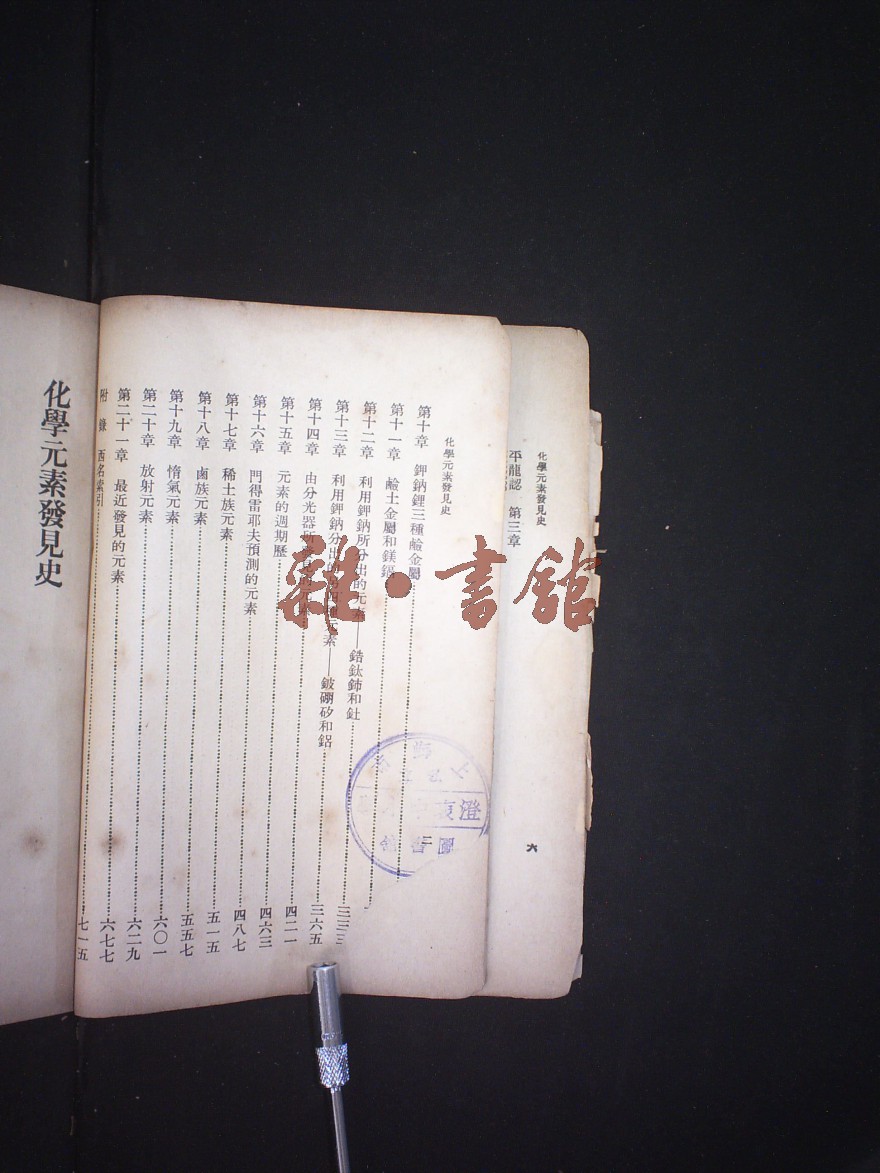 化學元素發見史
平龍認 第三章
六
化學元素發見史
第十章 鉀鈉鋰三種鹼金屬
第十一章 鹼土金屬和鎂鎘
第十二章 利用鉀鈉所分出的元素——鋯鈦鈰和釷……三三三
第十三章 利用鉀鈉分出的元素——鈹硼矽和鋁……三六五
第十四章 由分光器見的元素……四二一
第十五章 元素的週期歷……四六三
第十六章 門得雷耶夫預測的元素……四八七
第十七章 稀土族元素……五一五
第十八章 鹵族元素……五五七
第十九章 惰氣元素……六〇一
第二十章 放射元素……六二九
第二十一章 最近發見的元素……六七七
附錄 西名索引……七一五
化學元素發見史
雜·書館
澄衷
圖書館